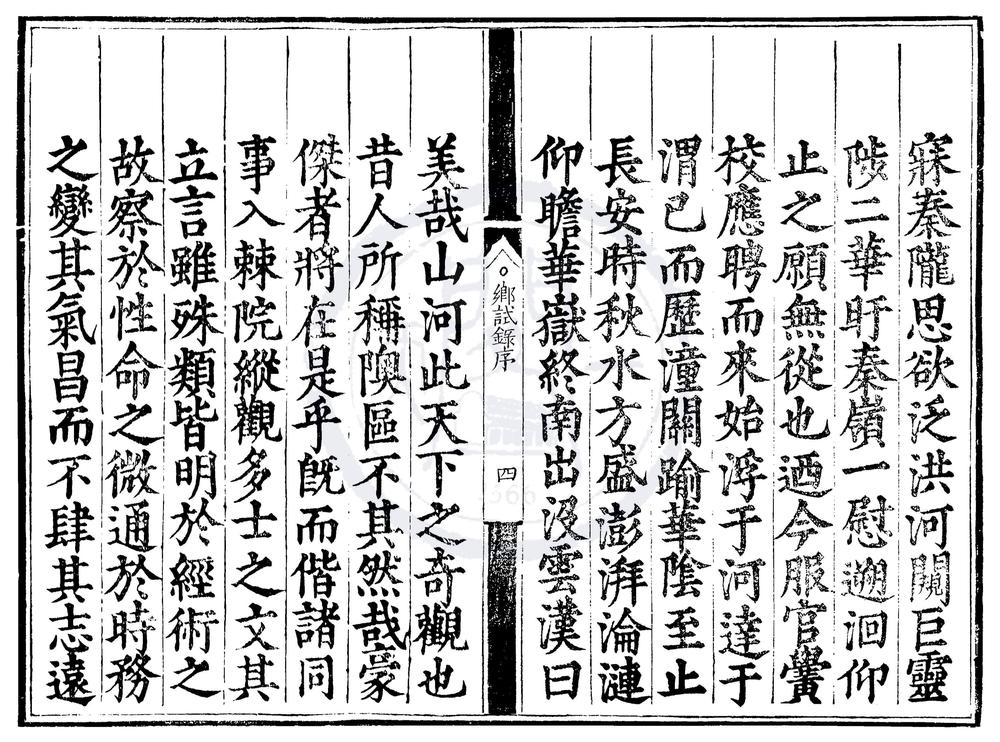 寐秦隴思欲泛洪河闚巨靈
陟二華盱秦嶺一慰遡洄仰
止之願無從也迺今服官黌
校應聘而來始浮于河達于
渭已而歷潼關踰華陰至止
長安時秋水方盛澎湃淪漣
仰瞻華嶽終南出沒雲漢曰
鄉試錄序
四
美哉山河此天下之奇觀也
昔人所稱隩區不其然哉豪
傑者將在是乎旣而偕諸同
事入棘院縱觀多士之文其
立言雖殊類皆明於經術之
故察於性命之微通於時務
之變其氣昌而不肆其志遠